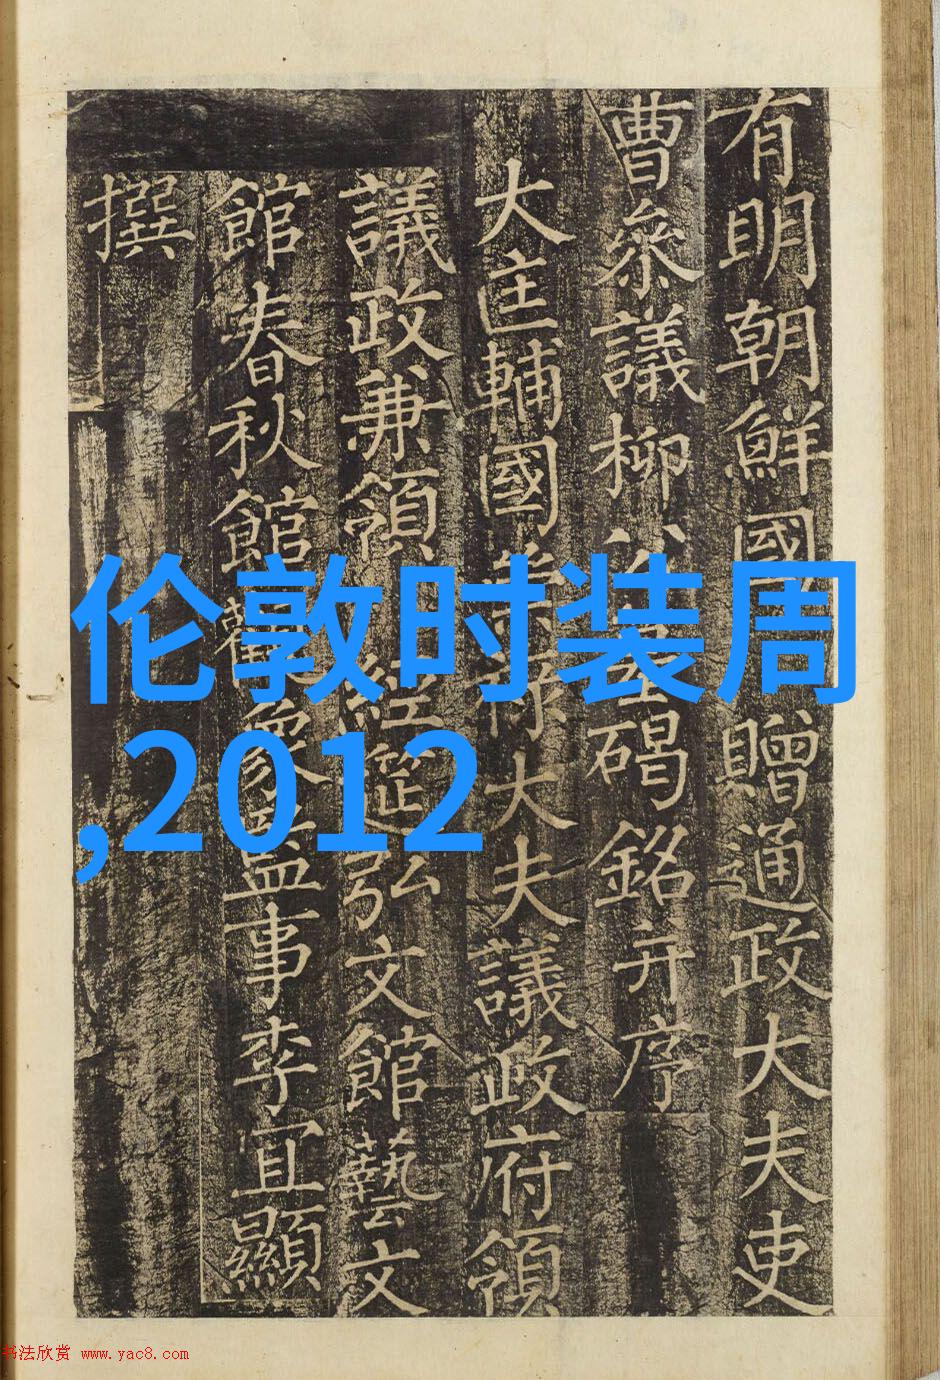 有明朝鮮國贈通政大夫吏
曹叅議柳公墓碣銘并序
大匡輔國崇祿大夫議政府領
議政兼領經筵弘文館藝文
館春秋館觀象監事李宜顯
撰
伦敦时装周
,2012
书法欣赏 www.yac8.com